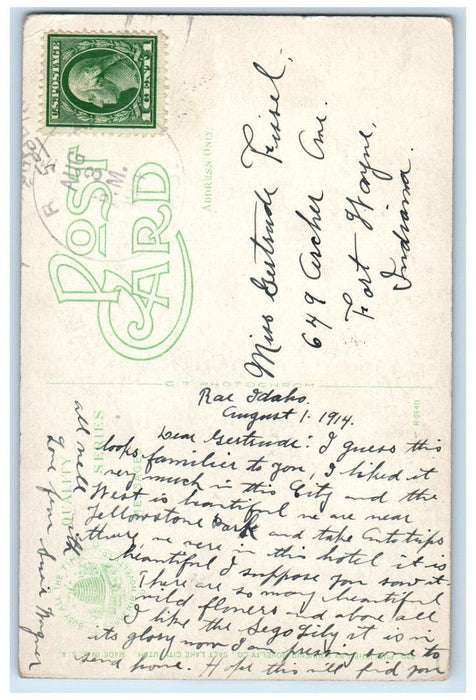 U.S. POSTAGE
1 CENT 1
AUG
3
M.
POST
CARD
ADDRESS ONLY
Miss Gertrude Trisel,
649 Archer Ave.
Fort Wayne,
Indiana.
C.T. PHOTOCHROM
R-25411
QUALITY
SERIES
Rae Idaho.
August 1. 1914.
Dear Gertrude: I guess this
looks familier to you, I liked it
very much in this City and the
West is beautiful we are near
Yellowstone Park and take Auto trips
there we were in this hotel it is
beautiful I suppose you saw it
There are so many beautiful
wild flowers and above all
I like the Sego Lily it is in
its glory now I am pressing some to
send home. Hope this will find you
all well with
Love from Susie Wagner
SALT LAKE CITY, UTAH MADE IN U.S.A.